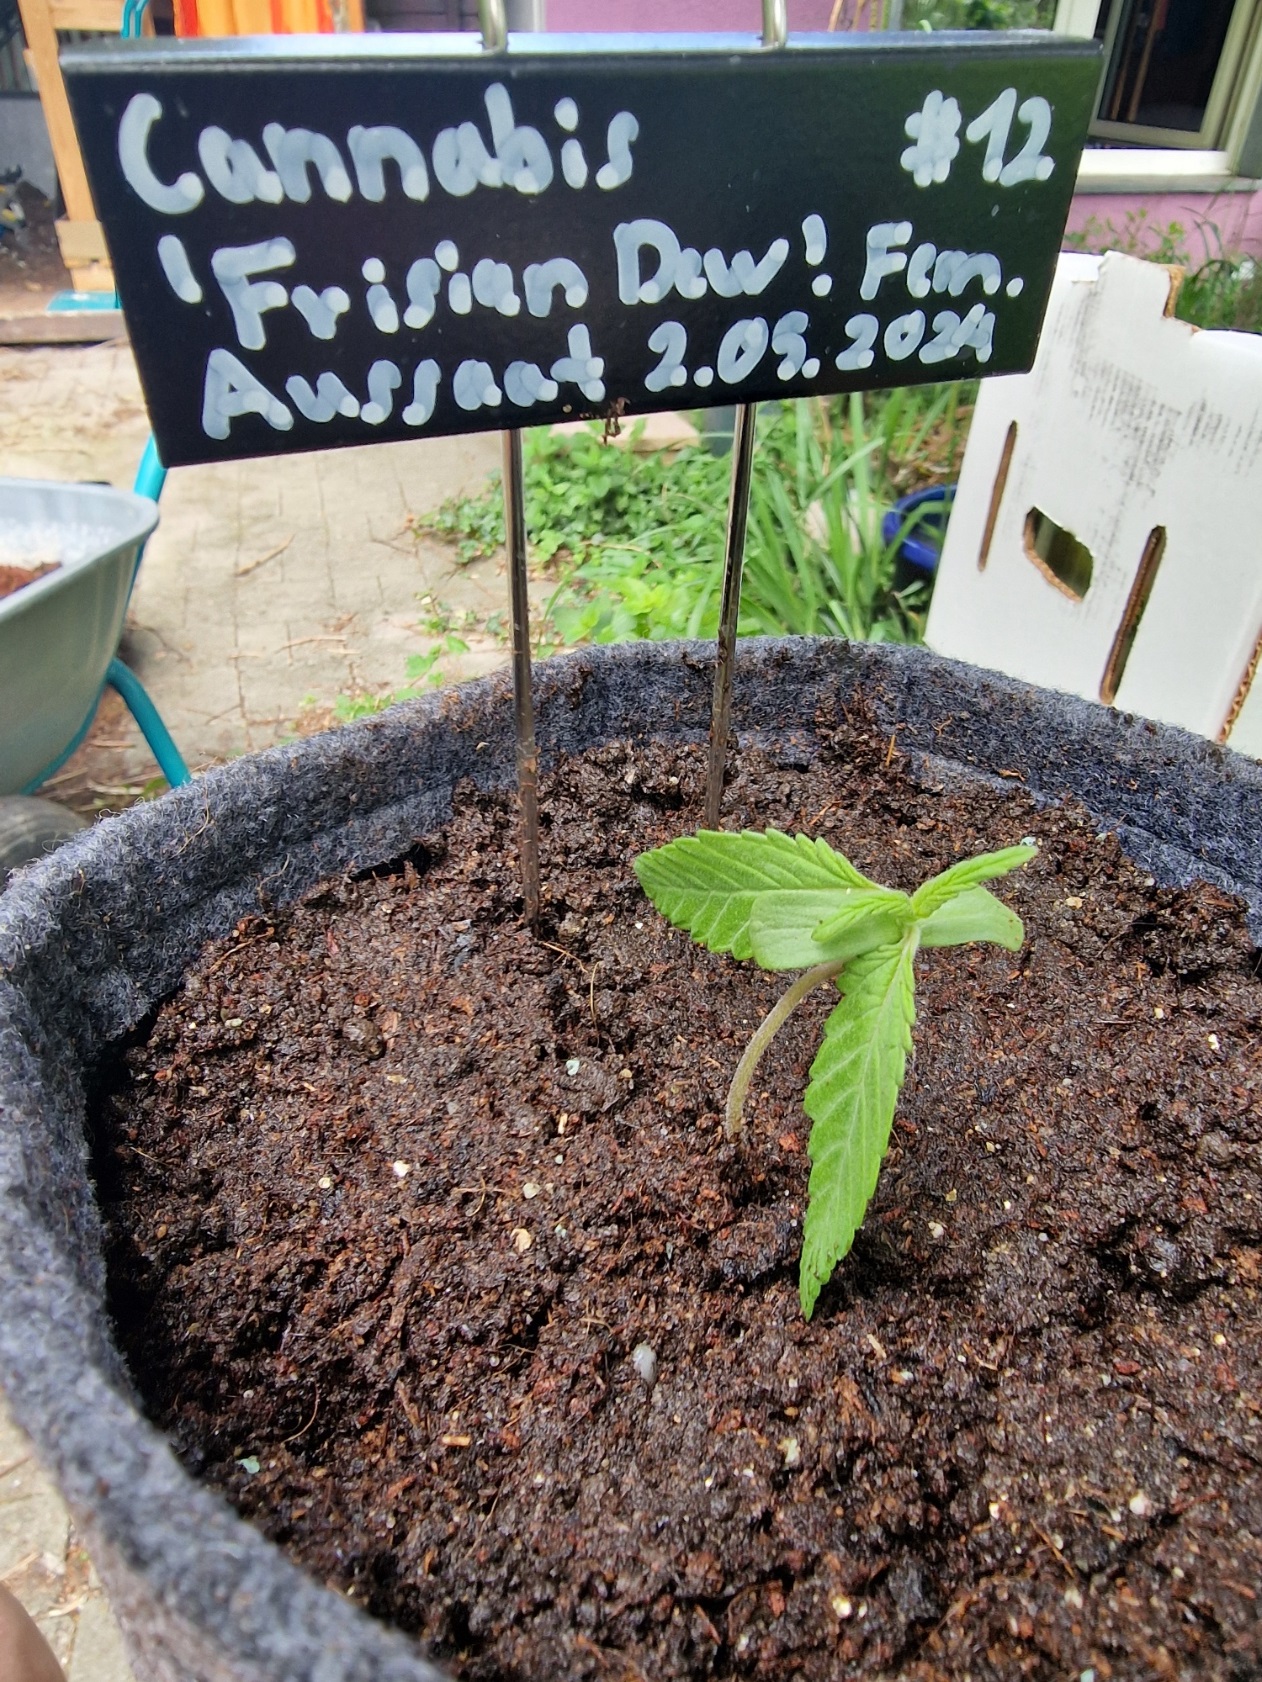 Cannabis #12
'Frisian Dew'. Fem.
Aussaat 2.05.2024